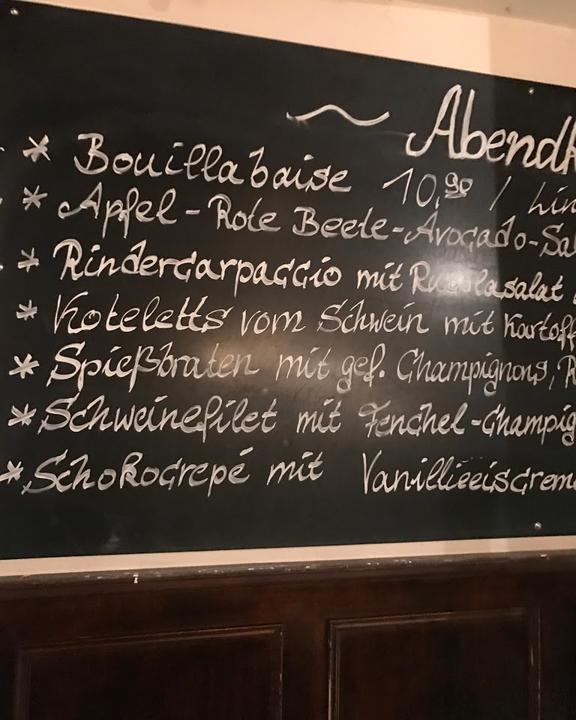 ~ Abendk
* Bouillabaise 10,90 / Lin
* Apfel-Rote Beete-Avocado-Sal
* Rindercarpaccio mit Rucolasalat
* Koteletts vom Schwein mit Kartoff
* Spießbraten mit gef. Champignons, R
* Schweinefilet mit Fenchel-Champig
* Schokocrepé mit Vanillieeiscreme